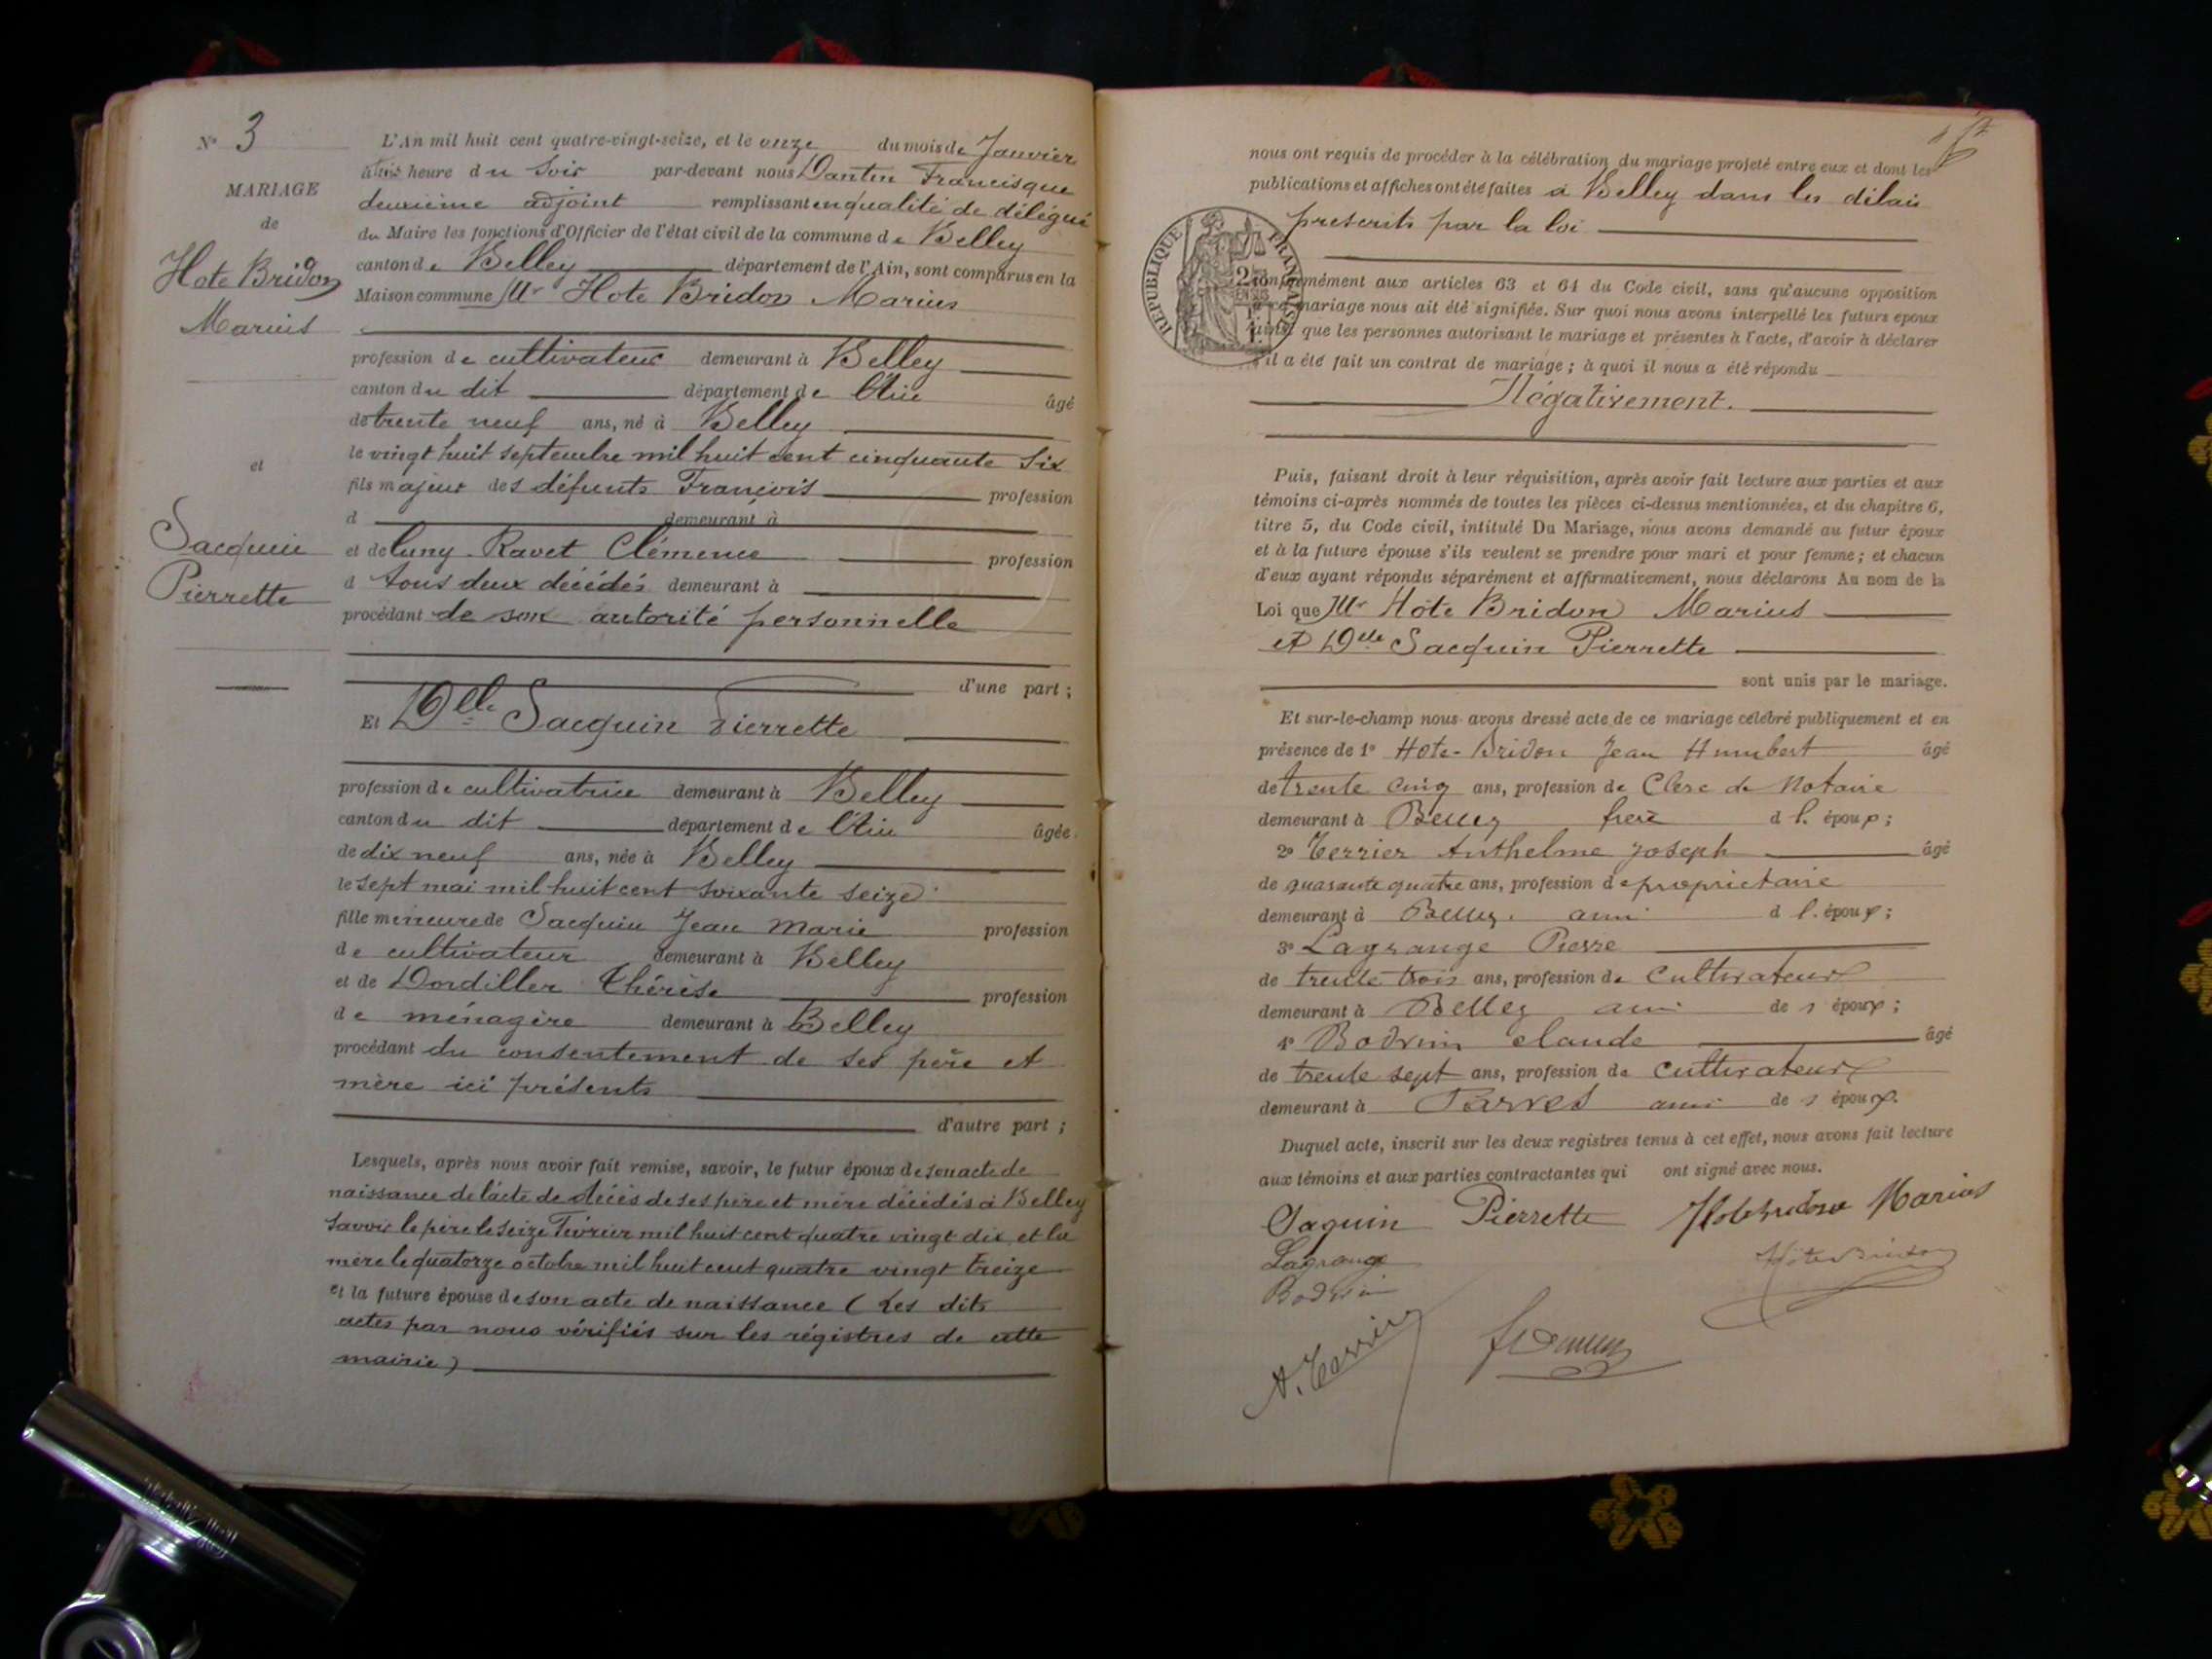 N° 3
MARIAGE
de
Hote Bridon
Marius
et
Sacquin
Pierrette
L'An mil huit cent quatre-vingt-seize, et le onze du mois de Janvier
à heure du soir par-devant nous Dantin Francisque
deuxième adjoint remplissant en qualité de délégué
du Maire les fonctions d'Officier de l'état civil de la commune de Belley
canton de Belley département de l'Ain, sont comparus en la
Maison commune Mr Hote Bridon Marius
profession de cultivateur demeurant à Belley
canton du dit département de l'Ain âgé
de trente neuf ans, né à Belley
le vingt huit septembre mil huit cent cinquante six
fils majeur des défunts François profession
d demeurant à
et de Cuny-Ravet Clémence profession
d tous deux décédés demeurant à
procédant de son autorité personnelle
d'une part ;
Et Delle Sacquin Pierrette
profession de cultivatrice demeurant à Belley
canton du dit département de l'Ain âgée
de dix neuf ans, née à Belley
le sept mai mil huit cent soixante seize
fille mineure de Sacquin Jean Marie profession
de cultivateur demeurant à Belley
et de Dordiller Thérèse profession
de ménagère demeurant à Belley
procédant du consentement de ses père et
mère ici présents
d'autre part ;
Lesquels, après nous avoir fait remise, savoir, le futur époux de son acte de
naissance de l'acte de décès de ses père et mère décédés à Belley
savoir le père le seize Février mil huit cent quatre vingt dix et la
mère le quatorze octobre mil huit cent quatre vingt treize
et la future épouse de son acte de naissance (Les dits
actes par nous vérifiés sur les régistres de cette
mairie)
nous ont requis de procéder à la célébration du mariage projeté entre eux et dont les
publications et affiches ont été faites à Belley dans les délais
prescrits par la loi
RÉPUBLIQUE FRANÇAISE
conformément aux articles 63 et 64 du Code civil, sans qu'aucune opposition
à ce mariage nous ait été signifiée. Sur quoi nous avons interpellé les futurs epoux
ainsi que les personnes autorisant le mariage et présentes à l'acte, d'avoir à déclarer
s'il a été fait un contrat de mariage ; à quoi il nous a été répondu
Négativement.
Puis, faisant droit à leur réquisition, après avoir fait lecture aux parties et aux
témoins ci-après nommés de toutes les pièces ci-dessus mentionnées, et du chapitre 6,
titre 5, du Code civil, intitulé Du Mariage, nous avons demandé au futur époux
et à la future épouse s'ils veulent se prendre pour mari et pour femme ; et chacun
d'eux ayant répondu séparément et affirmativement, nous déclarons Au nom de la
Loi que Mr Hôte Bridon Marius
et Delle Sacquin Pierrette
sont unis par le mariage.
Et sur-le-champ nous avons dressé acte de ce mariage célébré publiquement et en
présence de 1° Hote-Bridon Jean Humbert âgé
de trente cinq ans, profession de Clerc de Notaire
demeurant à Belley frere d l. époux ;
2° Terrier Anthelme Joseph âgé
de quarante quatre ans, profession de proprietaire
demeurant à Belley. ami d l. époux ;
3° Lagrange Pierre
de trente trois ans, profession de Cultivateur
demeurant à Belley ami de s époux ;
4° Bodrin Claude âgé
de trente sept ans, profession de Cultivateur
demeurant à Parves ami de s époux.
Duquel acte, inscrit sur les deux registres tenus à cet effet, nous avons fait lecture
aux témoins et aux parties contractantes qui ont signé avec nous.
Saquin Pierrette Hotebridon Marius
Lagrange Hôte Bridon
Bodrin
A. Terrier